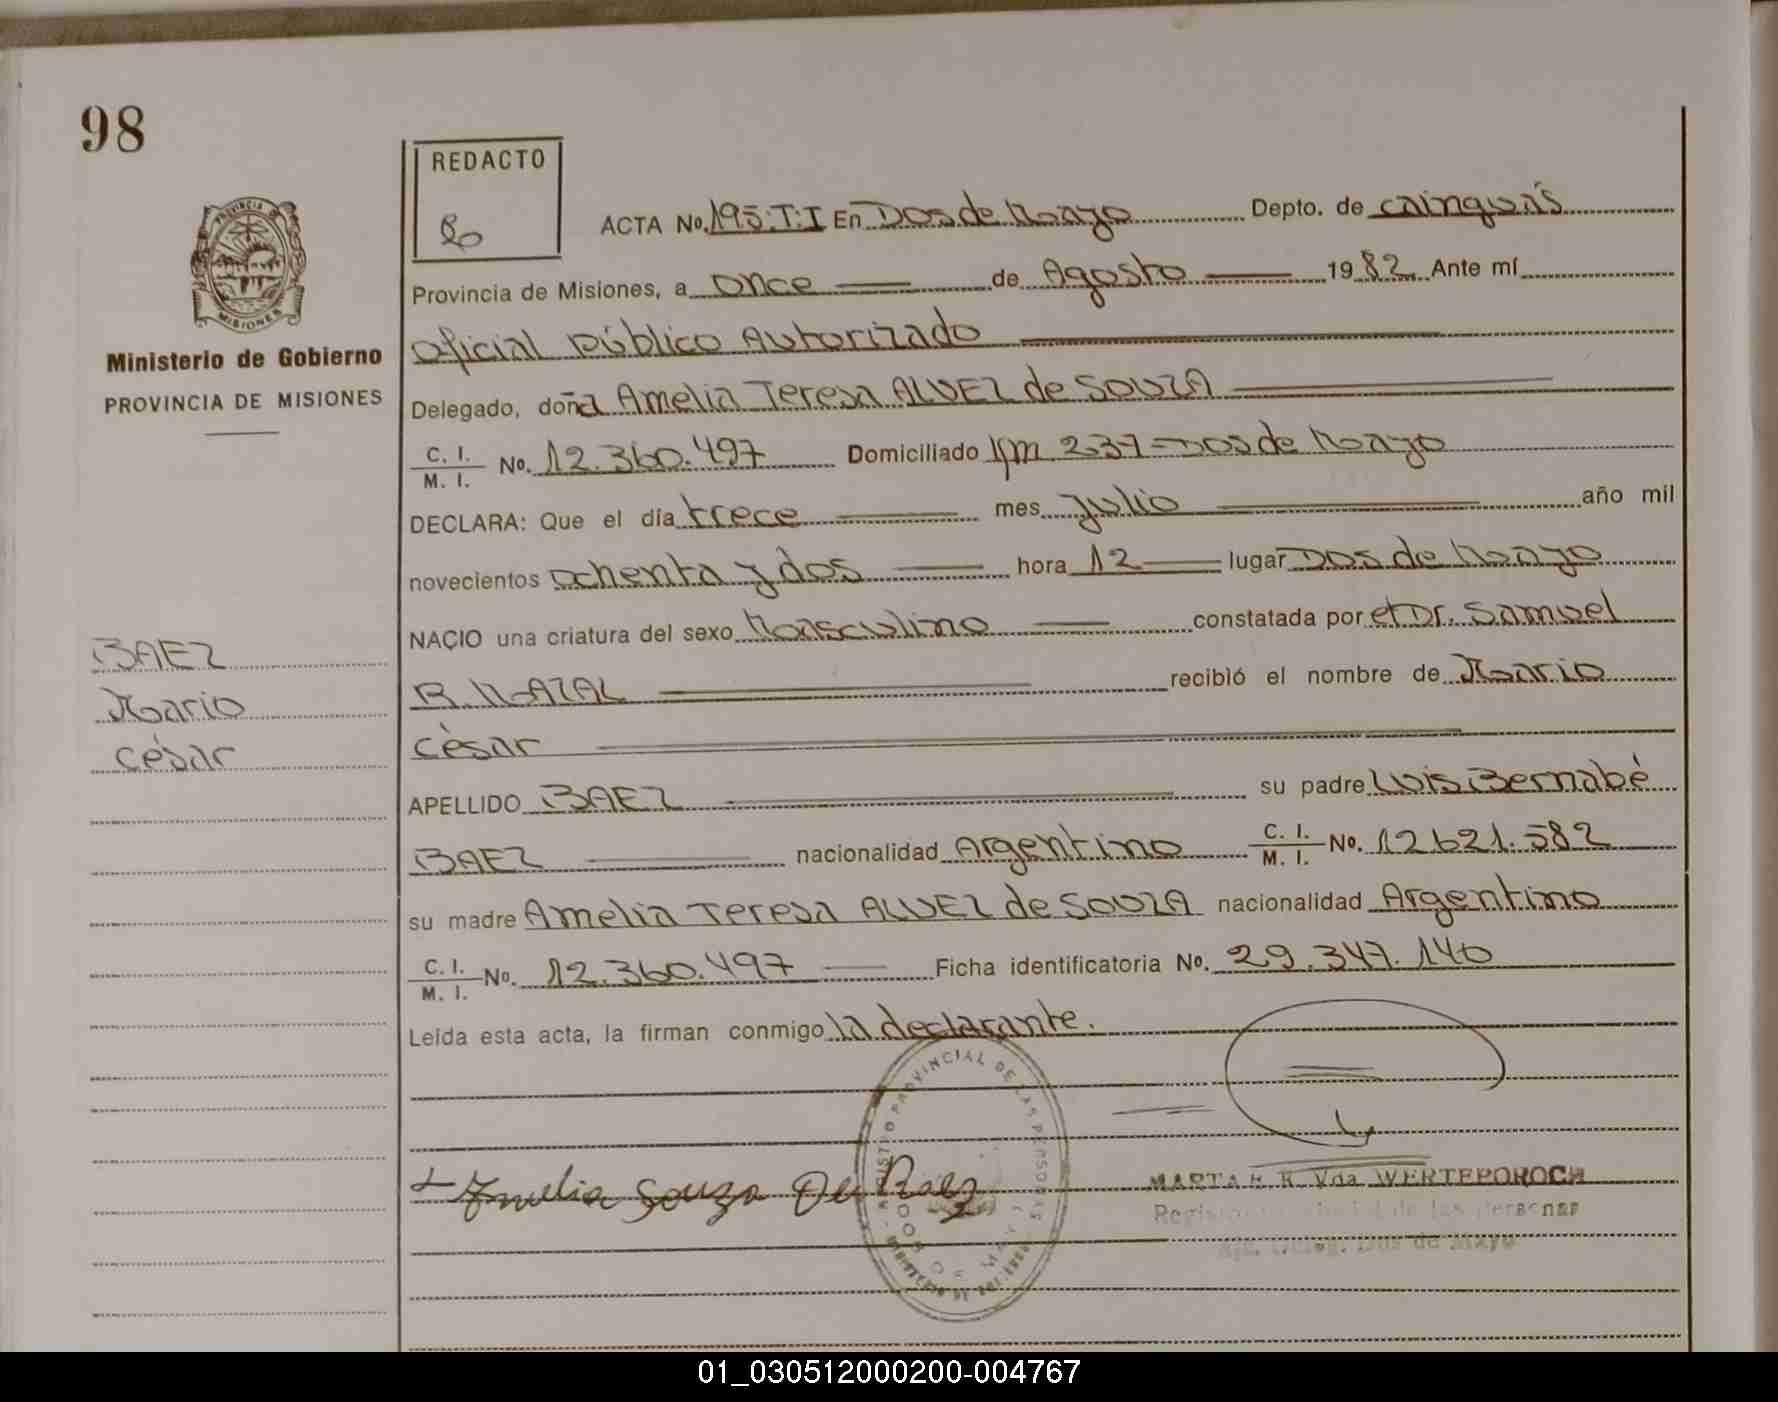 98
REDACTO
ACTA No. 195:T:I En Dos de Mayo Depto. de cainguás
Provincia de Misiones, a once de Agosto 1982. Ante mí
oficial Público Autorizado
Delegado, doña Amelia Teresa ALVEZ de SOUZA
C. I.
M. I. No. 12.360.497 Domiciliado Km 237-Dos de Mayo
DECLARA: Que el día trece mes Julio año mil
novecientos ochenta y dos hora 12 lugar Dos de Mayo
NACIO una criatura del sexo Masculino constatada por el Dr. Samuel
R. MAZAL recibió el nombre de Mario
César
APELLIDO BAEZ su padre Luis Bernabé
BAEZ nacionalidad Argentino C. I.
M. I. No. 12621.582
su madre Amelia Teresa ALVEZ de SOUZA nacionalidad Argentino
C. I.
M. I. No. 12.360.497 Ficha identificatoria No. 29.347.140
Leída esta acta, la firman conmigo la declarante.
PROVINCIA DE
MISIONES
Ministerio de Gobierno
PROVINCIA DE MISIONES
BAEZ
Mario
César
REGISTRO PROVINCIAL DE LAS PERSONAS
DOS DE MAYO
Amelia Souza De Baez
MARTA R. Vda WERTEPOROCH
de las Personas
Deleg. Dos de Mayo
01_030512000200-004767